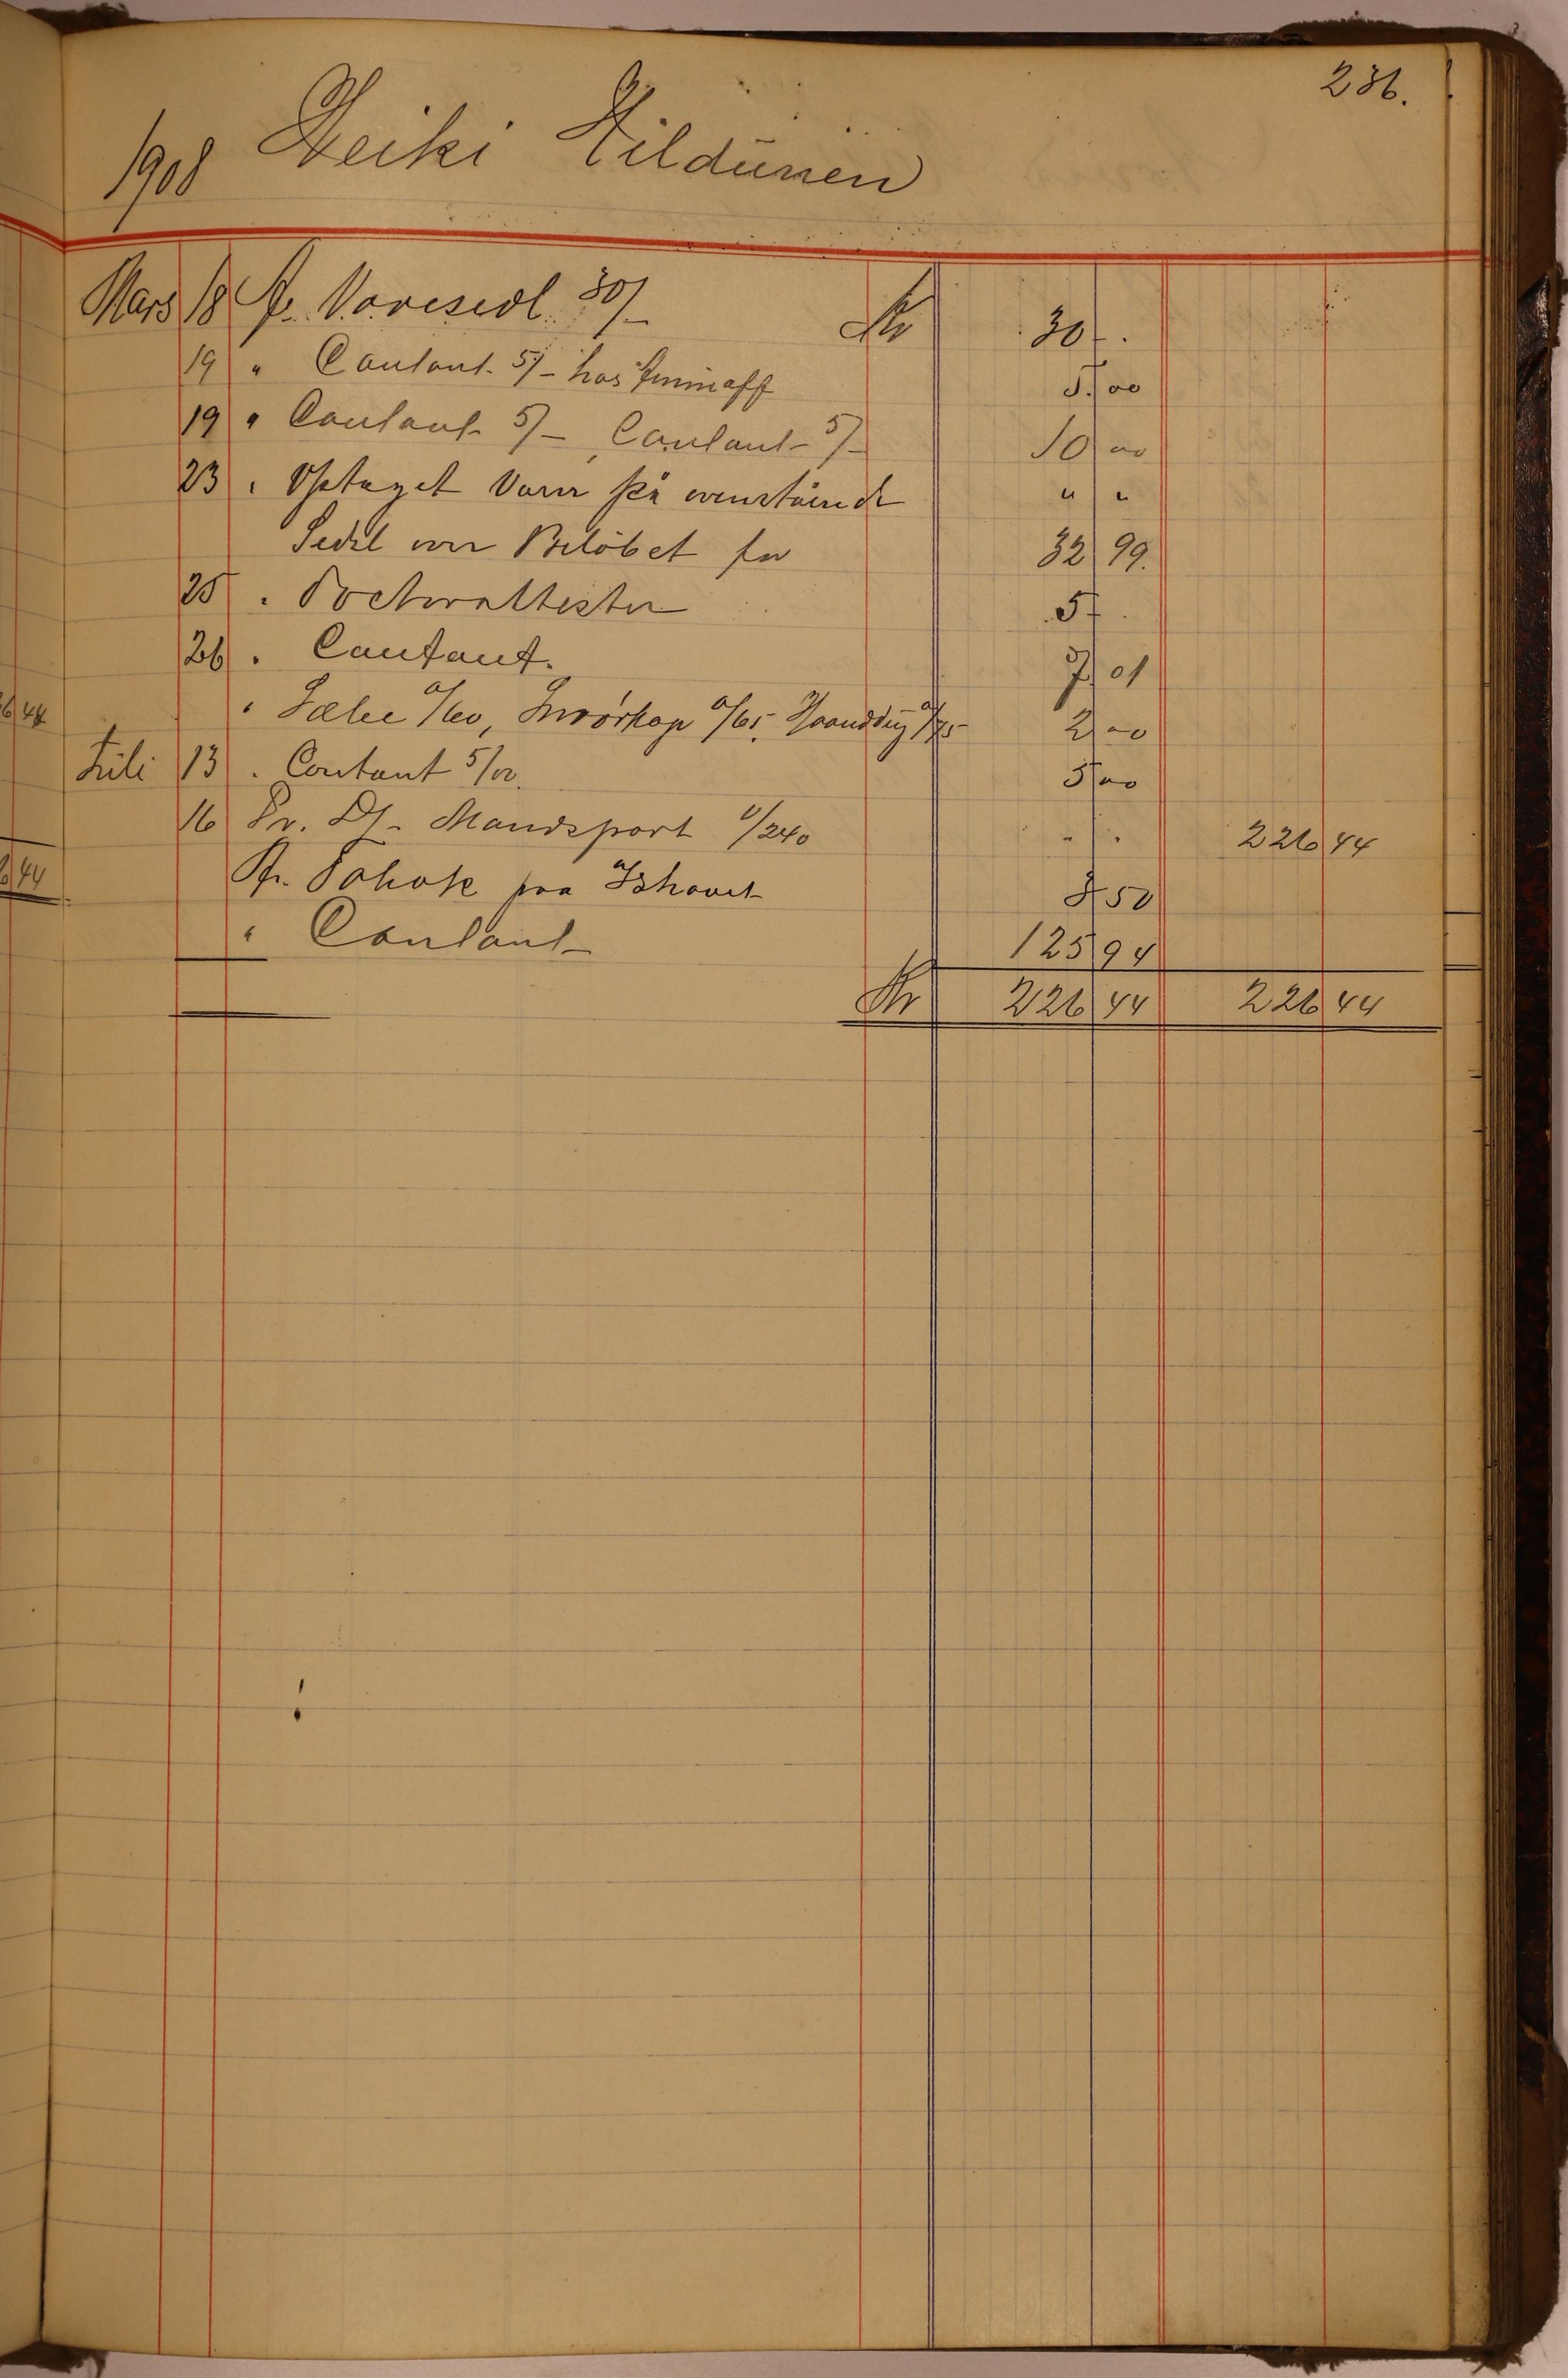 236.
1908 Heiki Hildünen
Mars 18 Pr. Varesedl 30/- Kr 30 -
19 " Contant 5/- hos 5.00
19 " Contant 5/-, Contant 5/- 10 00
23 " Optaget Varer på ovenstående " "
Sedel over Beløbet for 32 99.
25 " Doctorattester 5 -
26 " Contant. 7 01
" Sæbe a/60, Smørkop a/65, Haanddüg a/75 2 00
Juli 13 " Contant 5/00. 5 00
16 Pr. Dt. Mandspart 1/240 " " 226 44
Pr. Tobak paa Ishavet 3 50
" Contant 125 94
Kr 226 44 226 44
6 44
6 44